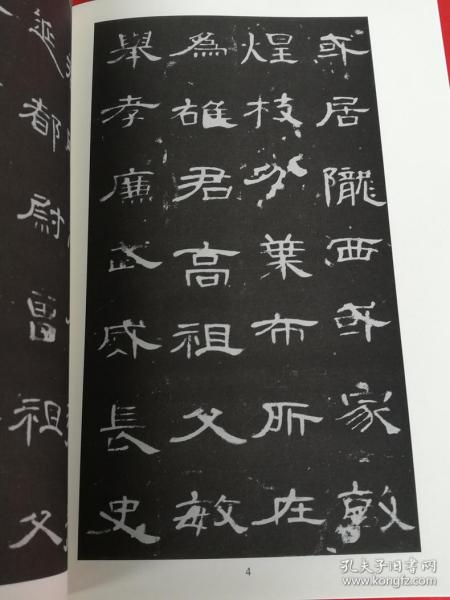 或居隴西或家敦
煌枝分葉布所在
為雄君高祖父敏
舉孝廉武威長史
都尉曾祖父
4
孔夫子旧书网
www.kongfz.com